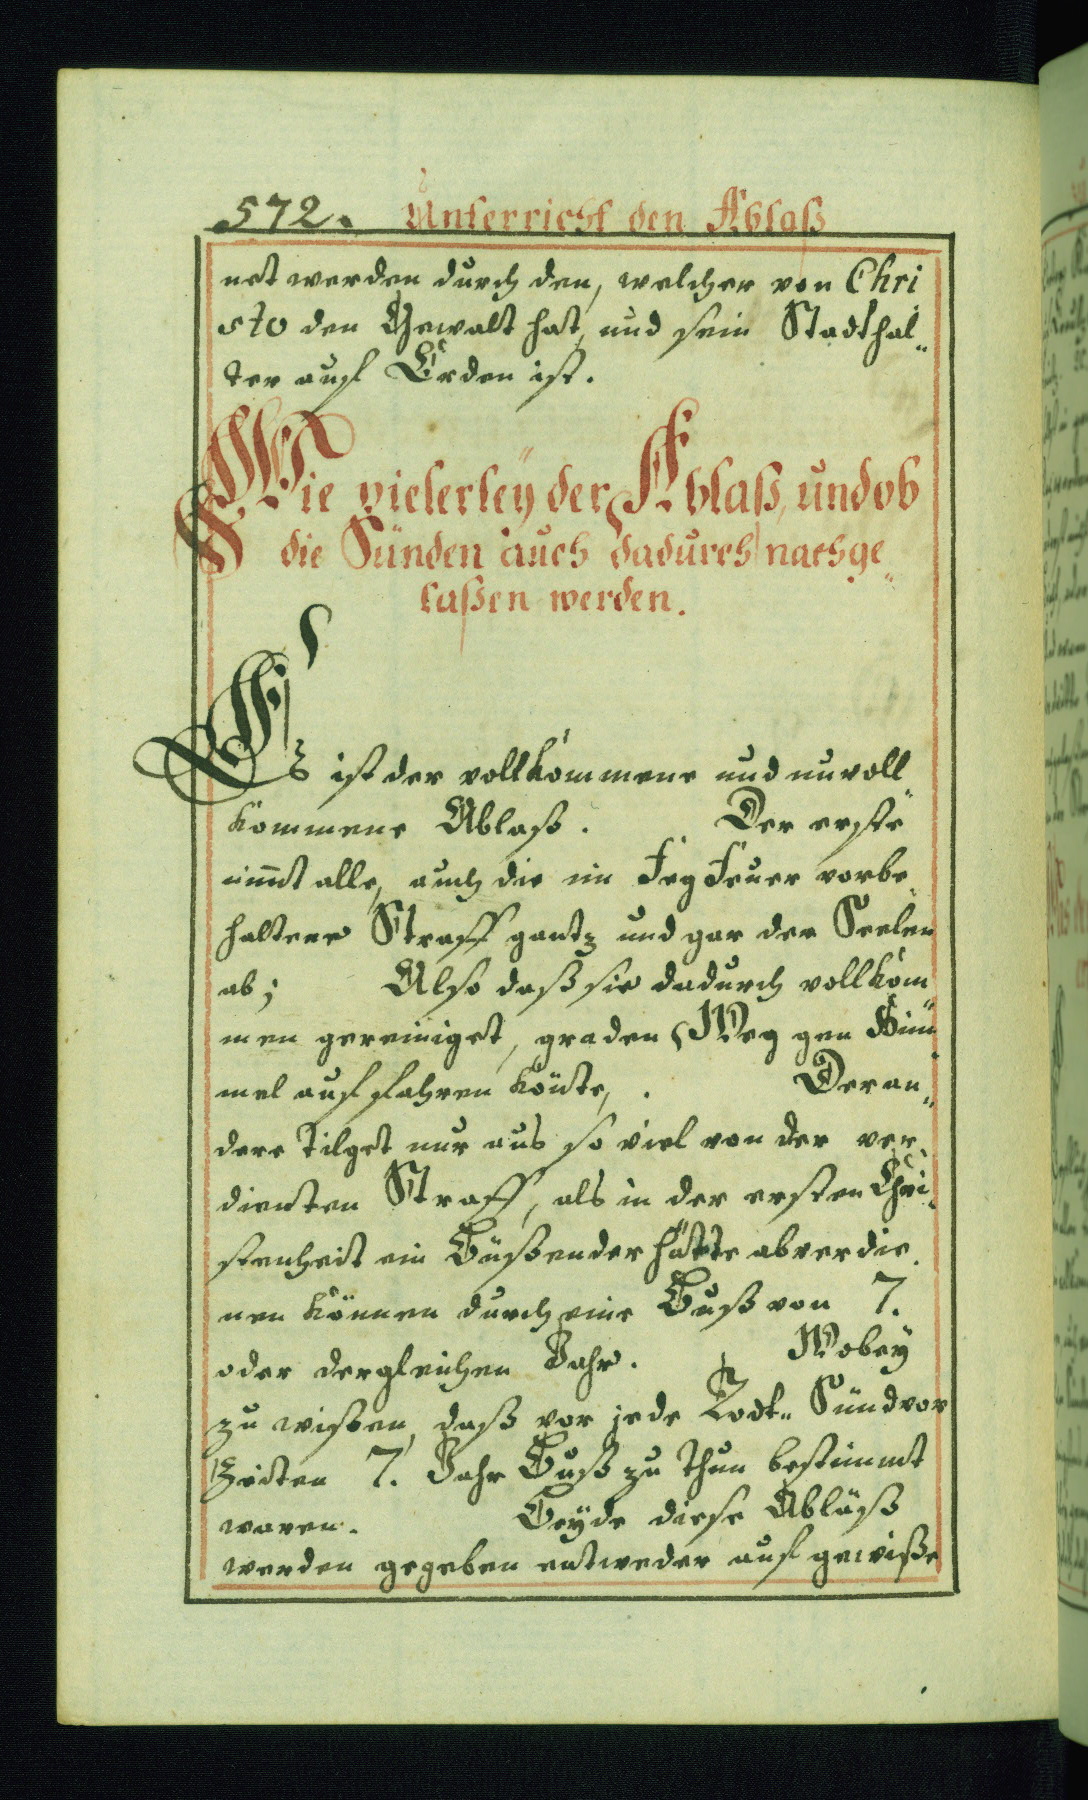 572. Unterricht den Ablaß
net werden durch den, welcher von Chri
sto den Gewalt hat, und sein Stadthal„
ter auf Erden ist.
Wie vielerleÿ der Ablaß, und ob
die Sünden auch dadurch nachge„
laßen werden.
Es ist der vollkommene und unvoll
kommene Ablaß. Der erste
nim̅t alle, auch die im Fegfeuer vorbe„
haltene Straff gantz und gar der Seelen
ab; Also daß sie dadurch vollkom„
men gereiniget, graden Weg gen Him„
mel auffahren könte, . Der an„
dere Tilget nur aus so viel von der ver„
dienten Straff, als in der ersten Chri„
stenheit ein Büßender hätte abverdie„
nen können durch eine Buß von 7.
oder dergleichen Jahr. Wobeÿ
zu wißen, daß vor jede Todt„ Sünd vor
Zeiten 7. Jahr Buß zu thun bestimmt
waren. Beÿde diese Abläß
werden gegeben entweder auf gewiße